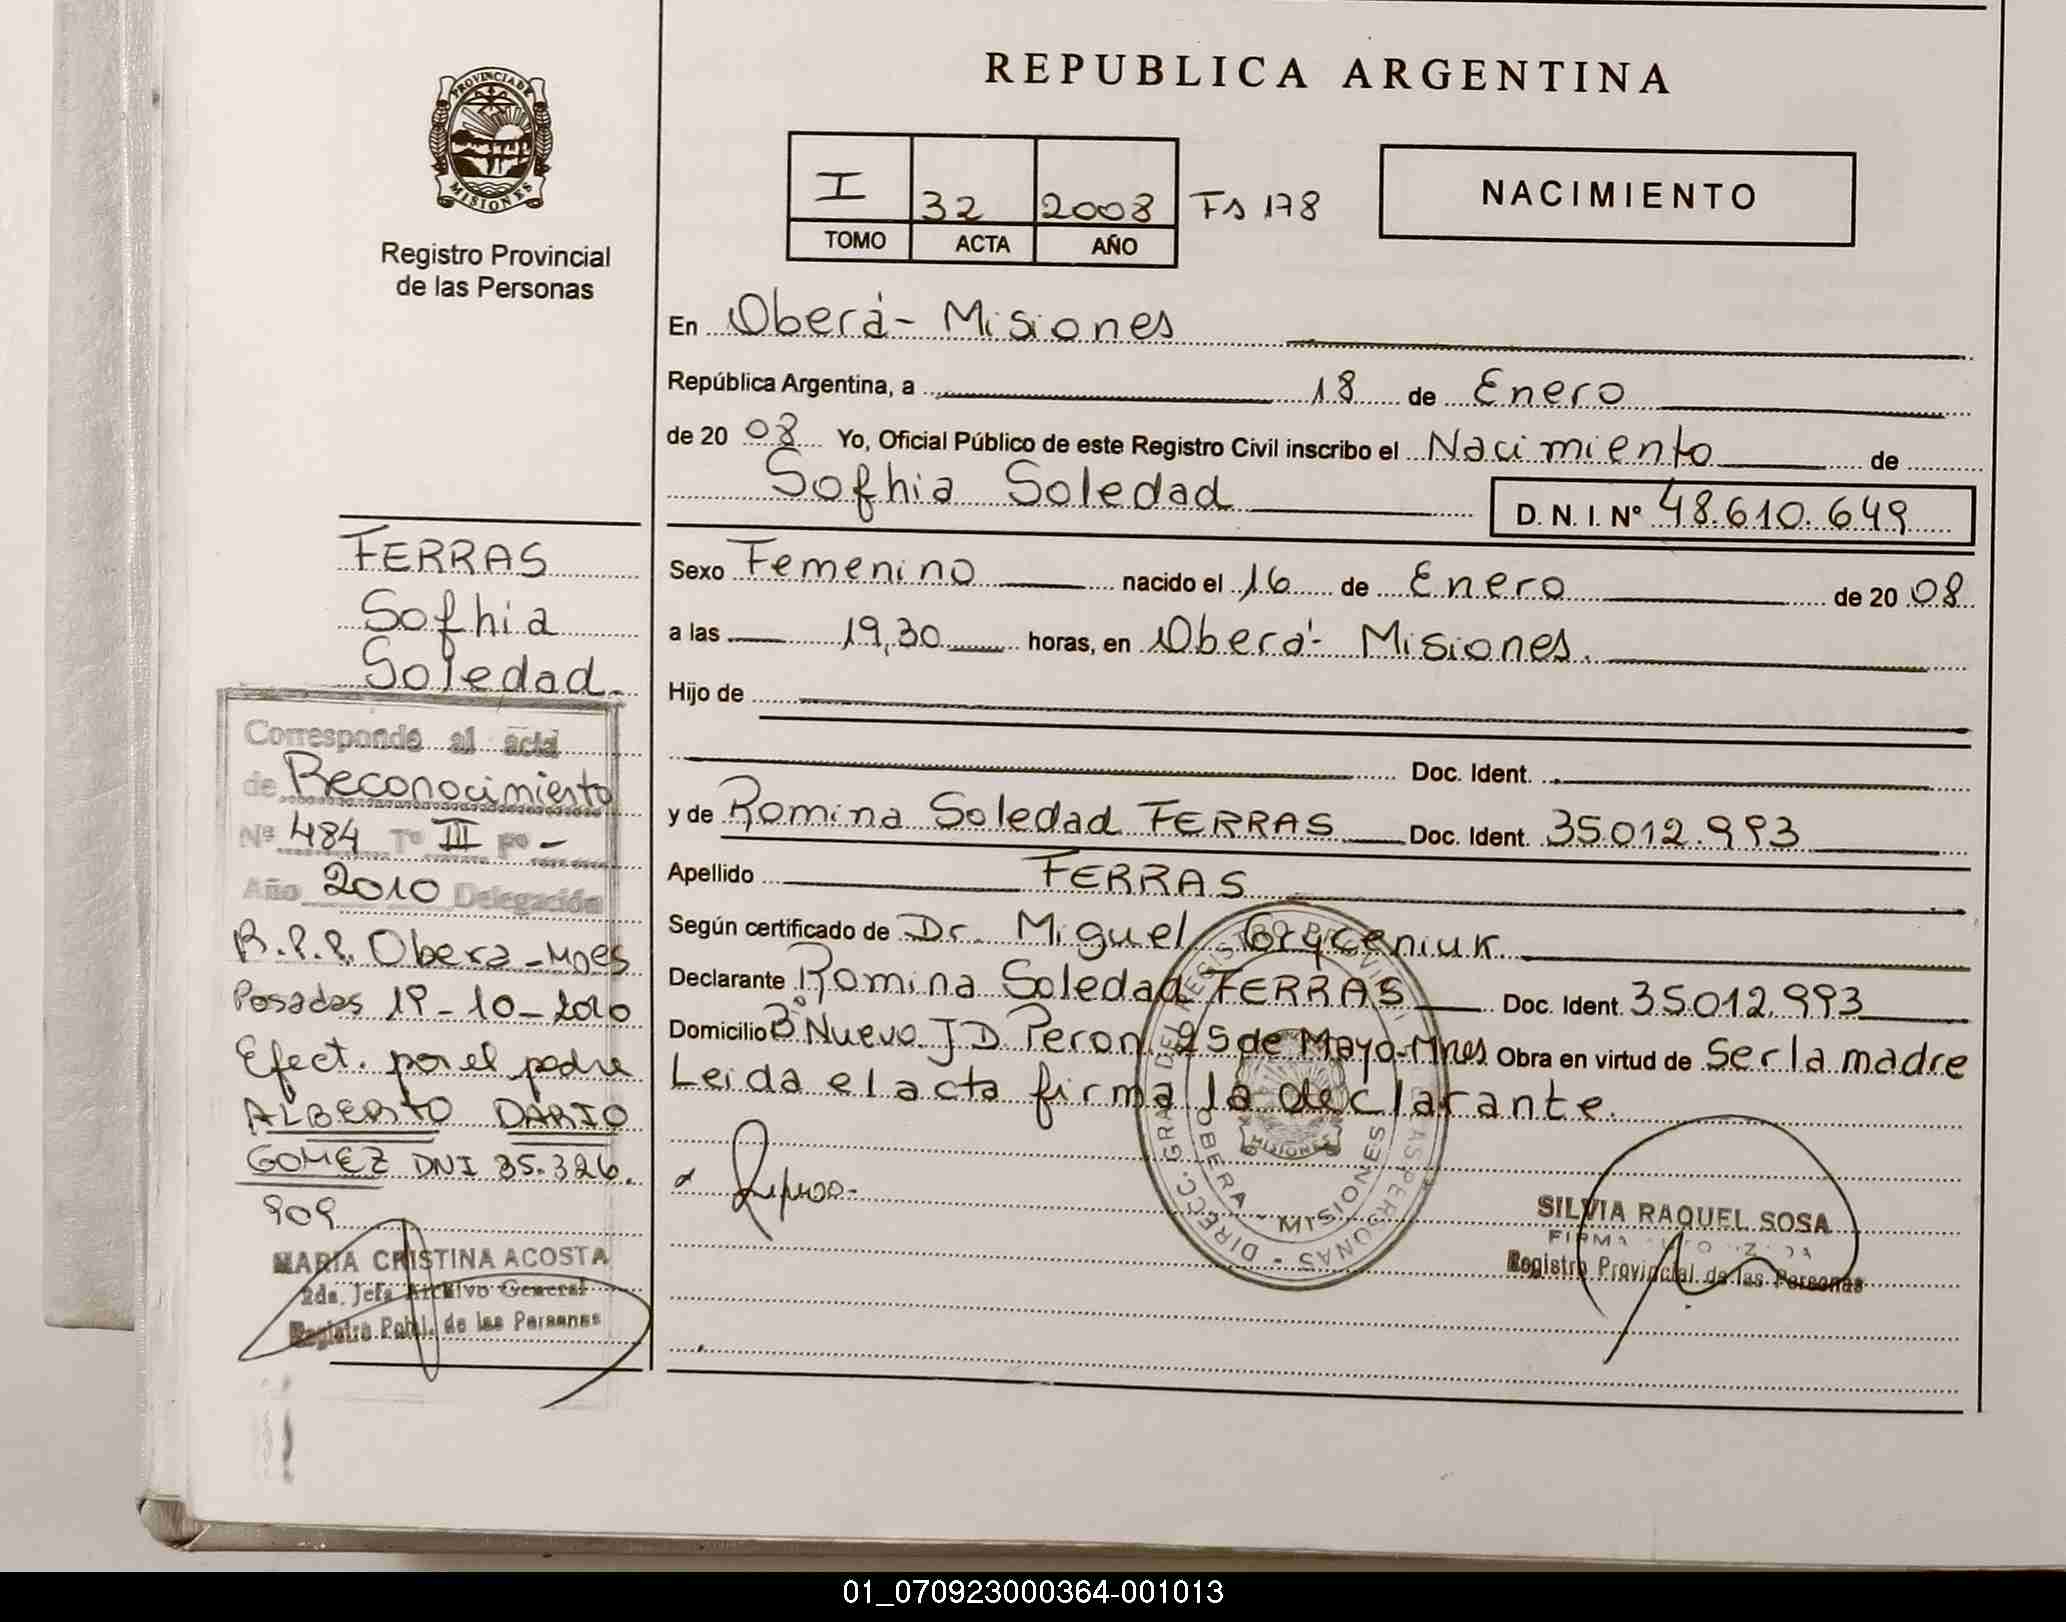 REPUBLICA ARGENTINA
PROVINCIA DE
MISIONES
Registro Provincial
de las Personas
I 32 2008 Fs 178
TOMO ACTA AÑO
NACIMIENTO
En Oberá - Misiones
República Argentina, a 18 de Enero
de 20 08 Yo, Oficial Público de este Registro Civil inscribo el Nacimiento de
Sofhia Soledad D. N. I. N° 48.610.649
Sexo Femenino nacido el 16 de Enero de 20 08
a las 19,30 horas, en Oberá - Misiones.
Hijo de
Doc. Ident.
y de Romina Soledad FERRAS Doc. Ident. 35.012.993
Apellido FERRAS
Según certificado de Dr. Miguel
Declarante Romina Soledad FERRAS Doc. Ident. 35.012.993
Domicilio B° Nuevo J D Peron 25 de Mayo-Mnes Obra en virtud de Ser la madre
Leida el acta firma la declarante.
SILVIA RAQUEL SOSA
FIRMA
Registro Provincial de las Personas
OBERA - MISIONES
MISIONES
FERRAS
Sofhia
Soledad.
Corresponde al acta
de Reconocimiento
Nº 484 Tº III Fº -
Año 2010 Delegación
R.P.P. Obera - Mnes
Posadas 19-10-2010
Efect. por el padre
ALBERTO DARIO
GOMEZ DNI 35.326.
909
MARIA CRISTINA ACOSTA
2da. Jefa Archivo General
Registro Pcial. de las Personas
01_070923000364-001013